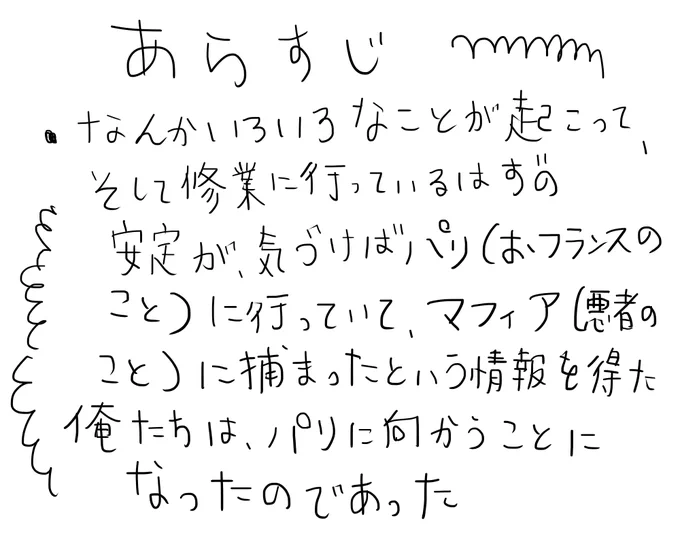 あらすじ
・なんかいろいろなことが起こって、
そして修業に行っているはずの
安定が、気づけばパリ(おフランスの
こと)に行っていて、マフィア(悪者の
こと)に捕まったという情報を得た
俺たちは、パリに向かうことに
なったのであった